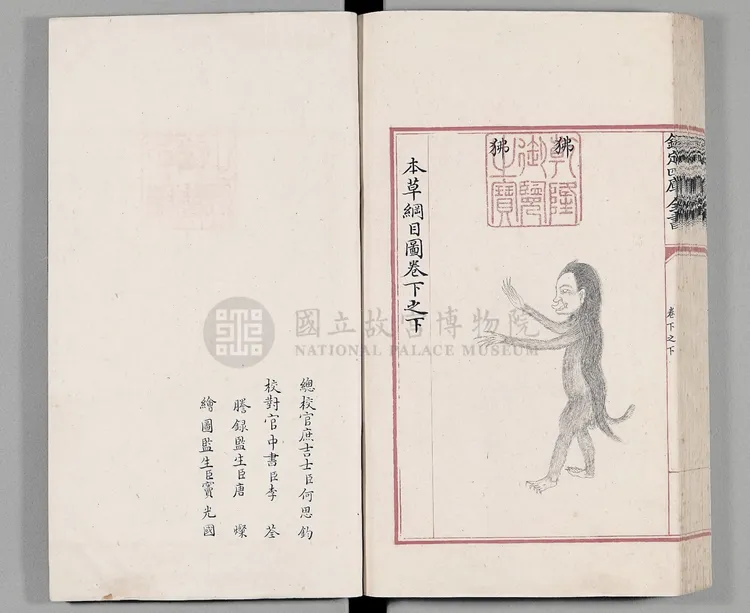 欽定四庫全書
卷下之下
狒狒
乾隆御覽之寶
本草綱目圖卷下之下
總校官庶吉士臣何思鈞
校對官中書臣李荃
謄錄監生臣唐燦
繪圖監生臣竇光國
國立故宮博物院
NATIONAL PALACE MUSEUM